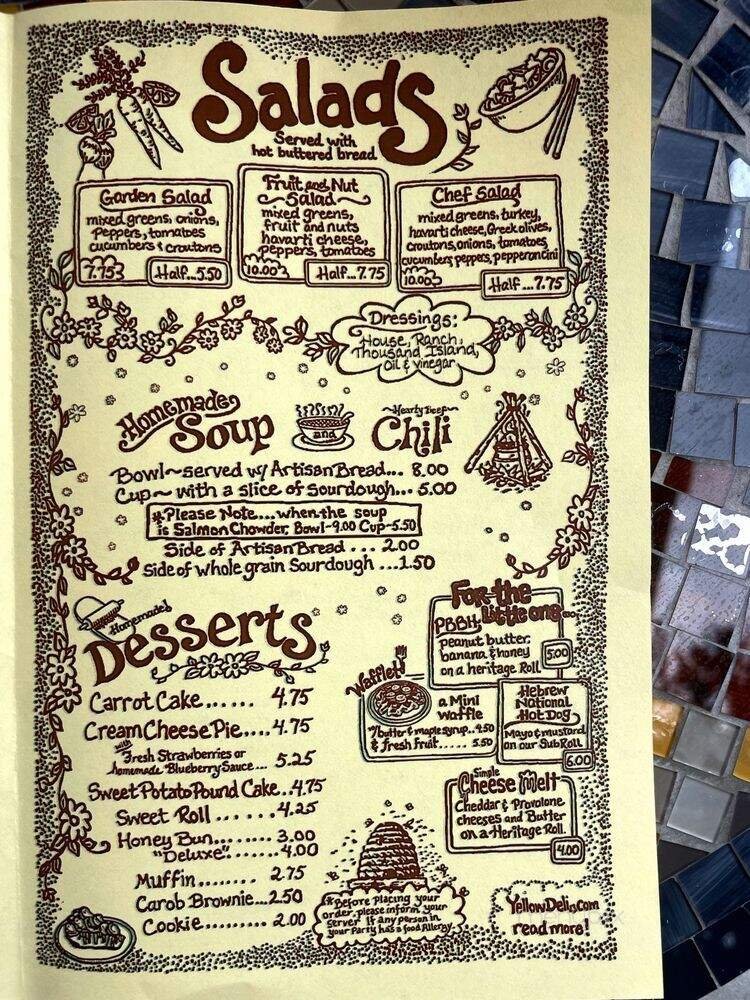 Salads
Served with
hot buttered bread
Garden Salad
mixed greens, onions,
peppers, tomatoes
cucumbers & croutons
7.75
Half...5.50
Fruit and Nut
Salad
mixed greens,
fruit and nuts
havarti cheese,
peppers, tomatoes
10.00
Half...7.75
Chef Salad
mixed greens, turkey,
havarti cheese, Greek olives,
croutons, onions, tomatoes
cucumbers, peppers, pepperoncini
10.00
Half...7.75
Dressings:
House, Ranch,
Thousand Island,
Oil & Vinegar
Homemade
Soup
and
Hearty Beef
Chili
Bowl~served w/ Artisan Bread... 8.00
Cup~ with a slice of Sourdough... 5.00
*Please Note....when the soup
is Salmon Chowder, Bowl-9.00 Cup-5.50
Side of Artisan Bread . . . 2.00
Side of whole grain Sourdough ...1.50
Homemade!
Desserts
Carrot Cake...... 4.75
Cream Cheese Pie....4.75
with
Fresh Strawberries or
homemade Blueberry Sauce.... 5.25
Sweet Potato Pound Cake..4.75
Sweet Roll ...... 4.25
Honey Bun....... 3.00
"Deluxe".......4.00
Muffin........ 2.75
Carob Brownie...2.50
Cookie........ 2.00
For the
Little ones...
PBBH,
peanut butter,
banana & honey
on a heritage Roll
5.00
Wafflet
a Mini
Waffle
w/butter & maple syrup..4.50
& fresh fruit..... 5.50
Hebrew
National
Hot Dog
Mayo & mustard
on our Sub Roll
6.00
Simple
Cheese Melt
Cheddar & Provolone
cheeses and Butter
on a Heritage Roll.
4.00
*Before placing your
order, please inform your
server if any person in
your Party has a food Allergy.
YellowDeli.com
read more!